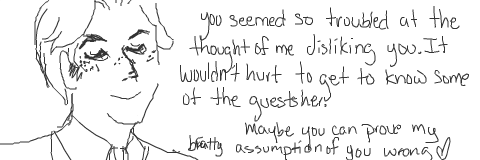 you seemed so troubled at the
thought of me disliking you. It
wouldn't hurt to get to know some
of the guestsher.
Maybe you can prove my
bratty assumption of you wrong ♡